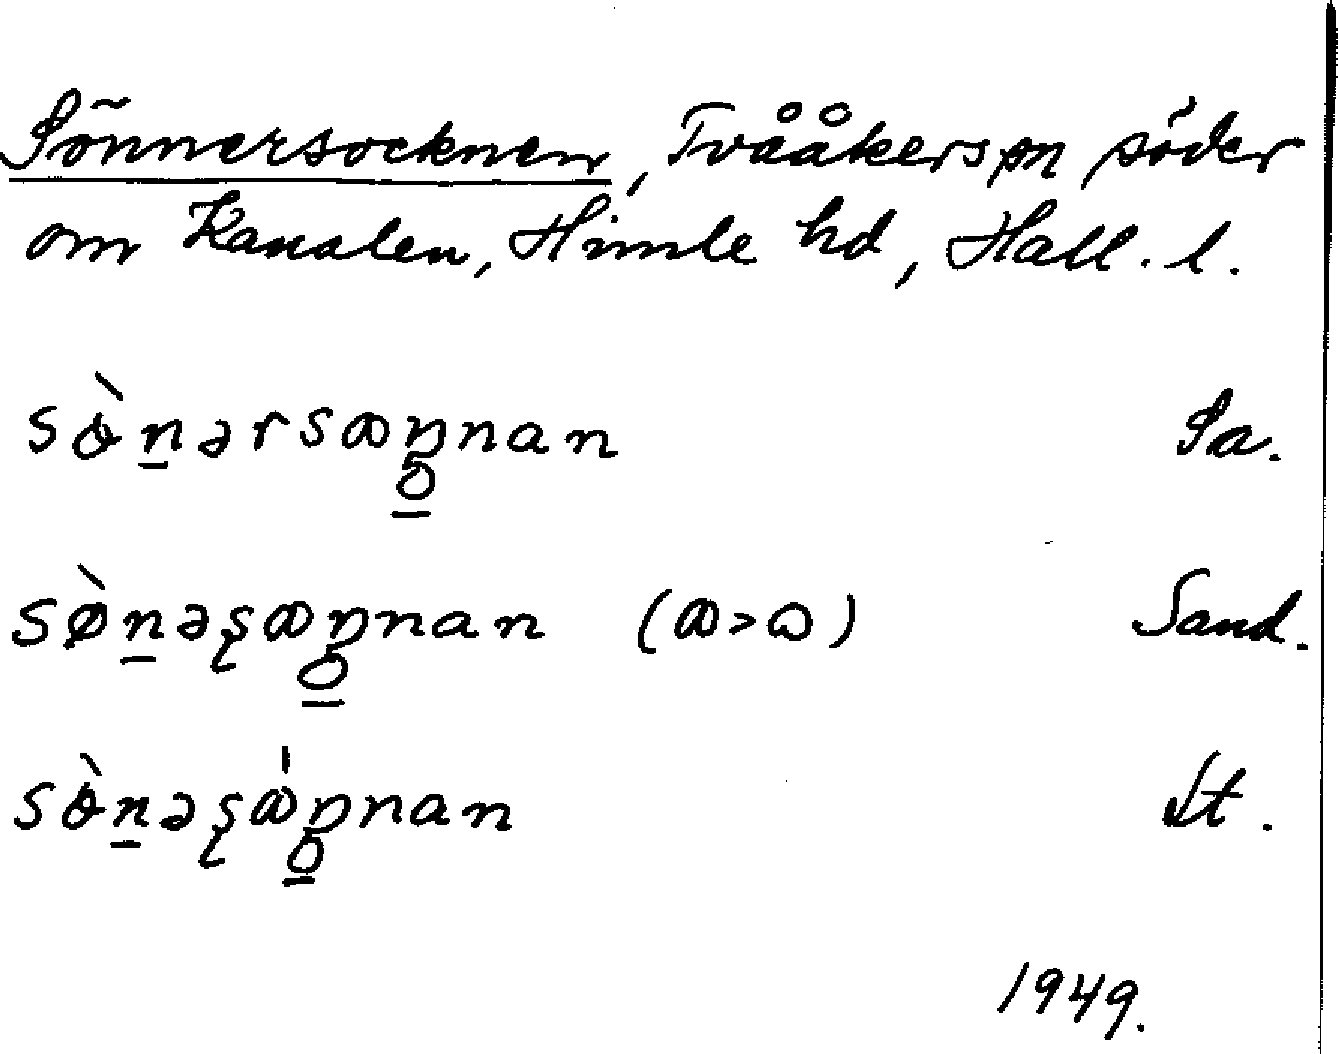 Sönnersocknen, Tvååkers sn söder
om Kanalen, Himle hd, Hall. l.
sò̀n̠ərsꝏŋ̠nan Sa.
sø̀n̠əʂꝏŋ̠nan (ꝏ>ɷ) Sand.
sò̀n̠əʂꝏ́ŋ̠nan St.
1949.